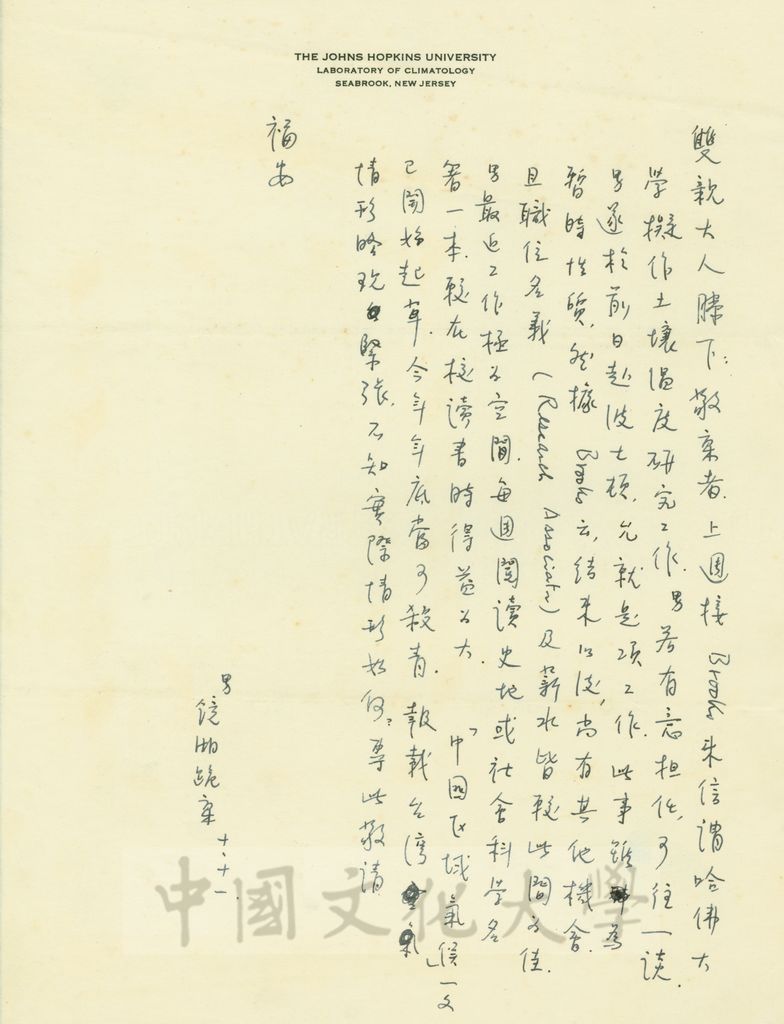 THE JOHNS HOPKINS UNIVERSITY
LABORATORY OF CLIMATOLOGY
SEABROOK, NEW JERSEY
雙親大人膝下:敬稟者.上週接Brooks來信謂哈佛大
學擬作土壤溫度研究工作.男若有意担任,可往一談.
男遂於前日赴波士頓,允就是項工作.此事雖為
暫時性質,然據Brooks云,結束以後,尚有其他機會.
且職位名義(Research Associate)及薪水皆較此間為佳.
男最近工作極為空閒.每週閱讀史地或社會科學名
著一本.較在校讀書時得益為大.「中國區域氣候」一文
已開始起草.今年年底當可殺青.報載台灣
情形略現緊張,不知實際情形如何?專此敬請
福安
男
鏡湖跪稟 十、十一.
中國文化大學